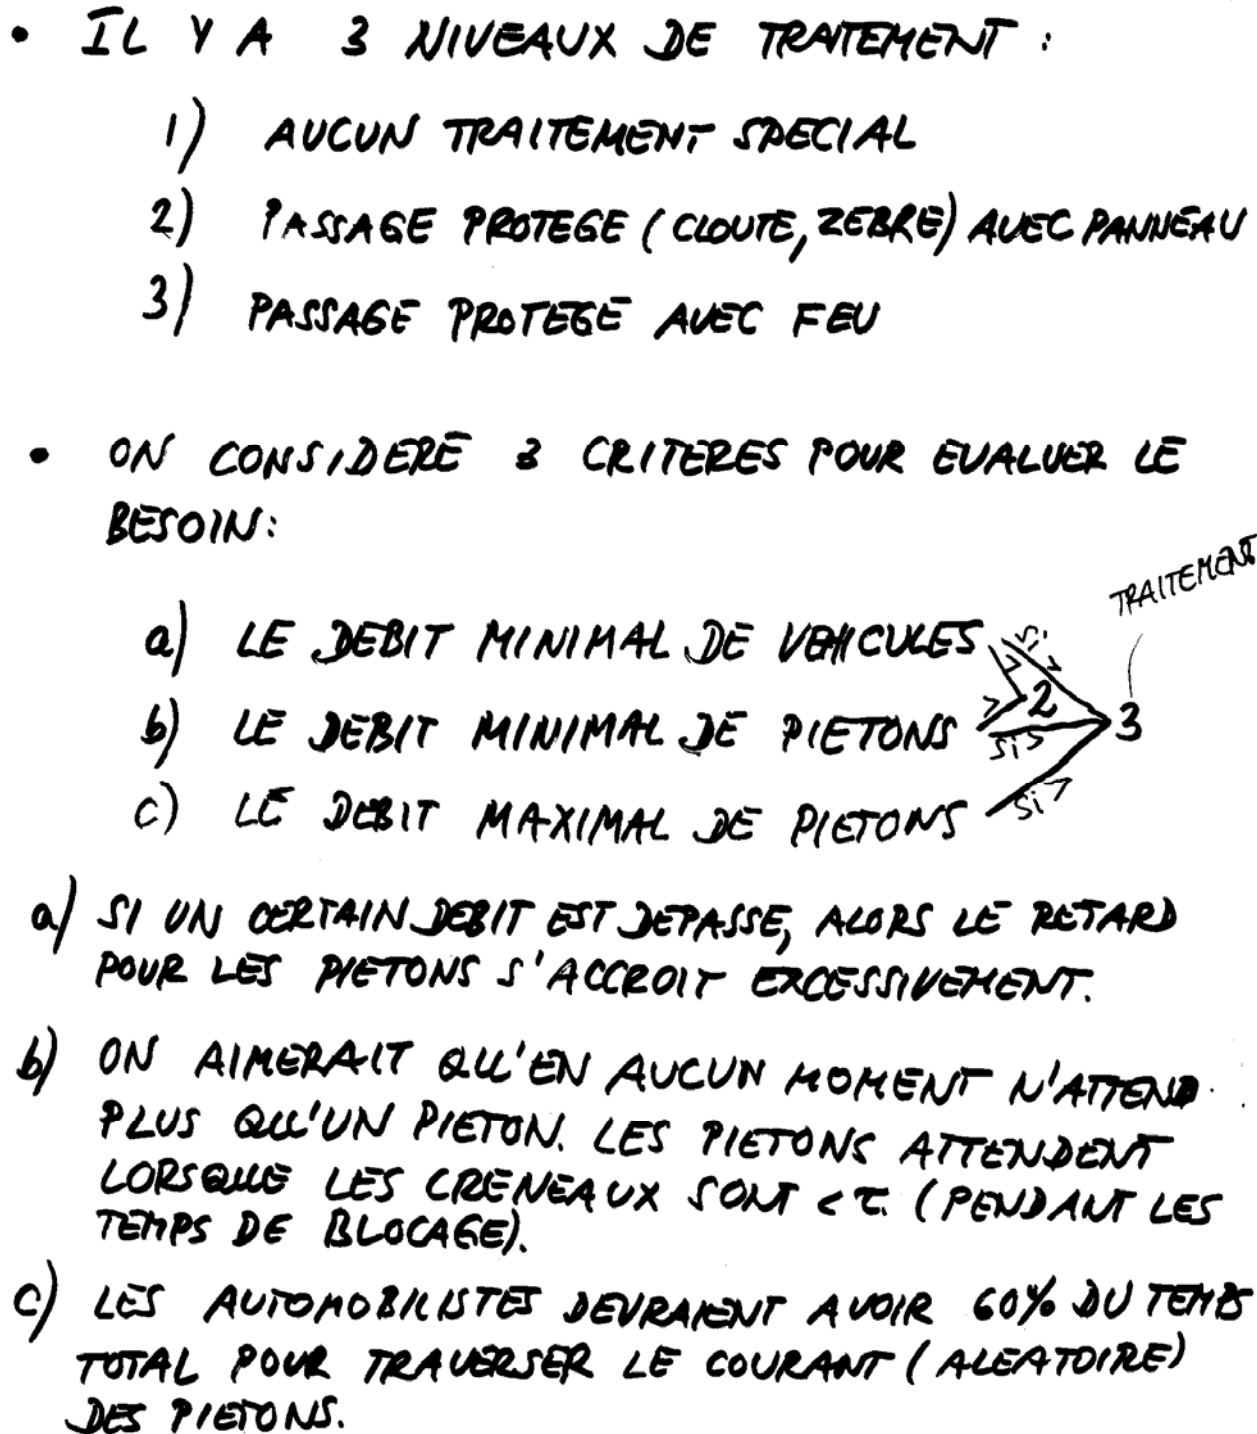 • IL Y A 3 NIVEAUX DE TRAITEMENT :
1) AUCUN TRAITEMENT SPECIAL
2) PASSAGE PROTEGE (CLOUTE, ZEBRE) AVEC PANNEAU
3) PASSAGE PROTEGE AVEC FEU
• ON CONSIDERE 3 CRITERES POUR EVALUER LE
BESOIN:
TRAITEMENT
a) LE DEBIT MINIMAL DE VEHICULES si >
> 2 3
b) LE DEBIT MINIMAL DE PIETONS > si >
c) LE DEBIT MAXIMAL DE PIETONS si >
a) SI UN CERTAIN DEBIT EST DEPASSE, ALORS LE RETARD
POUR LES PIETONS S'ACCROIT EXCESSIVEMENT.
b) ON AIMERAIT QU'EN AUCUN MOMENT N'ATTEND
PLUS QU'UN PIETON. LES PIETONS ATTENDENT
LORSQUE LES CRENEAUX SONT < τ. (PENDANT LES
TEMPS DE BLOCAGE).
c) LES AUTOMOBILISTES DEVRAIENT AVOIR 60% DU TEMPS
TOTAL POUR TRAVERSER LE COURANT (ALEATOIRE)
DES PIETONS.